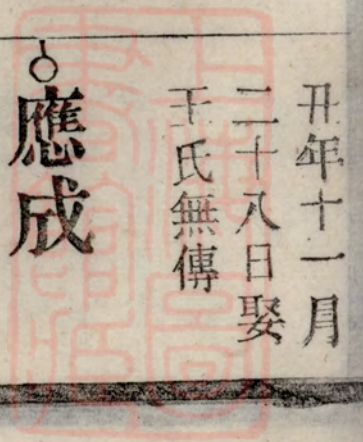 丑年十一月
二十八日娶
王氏無傳
應成